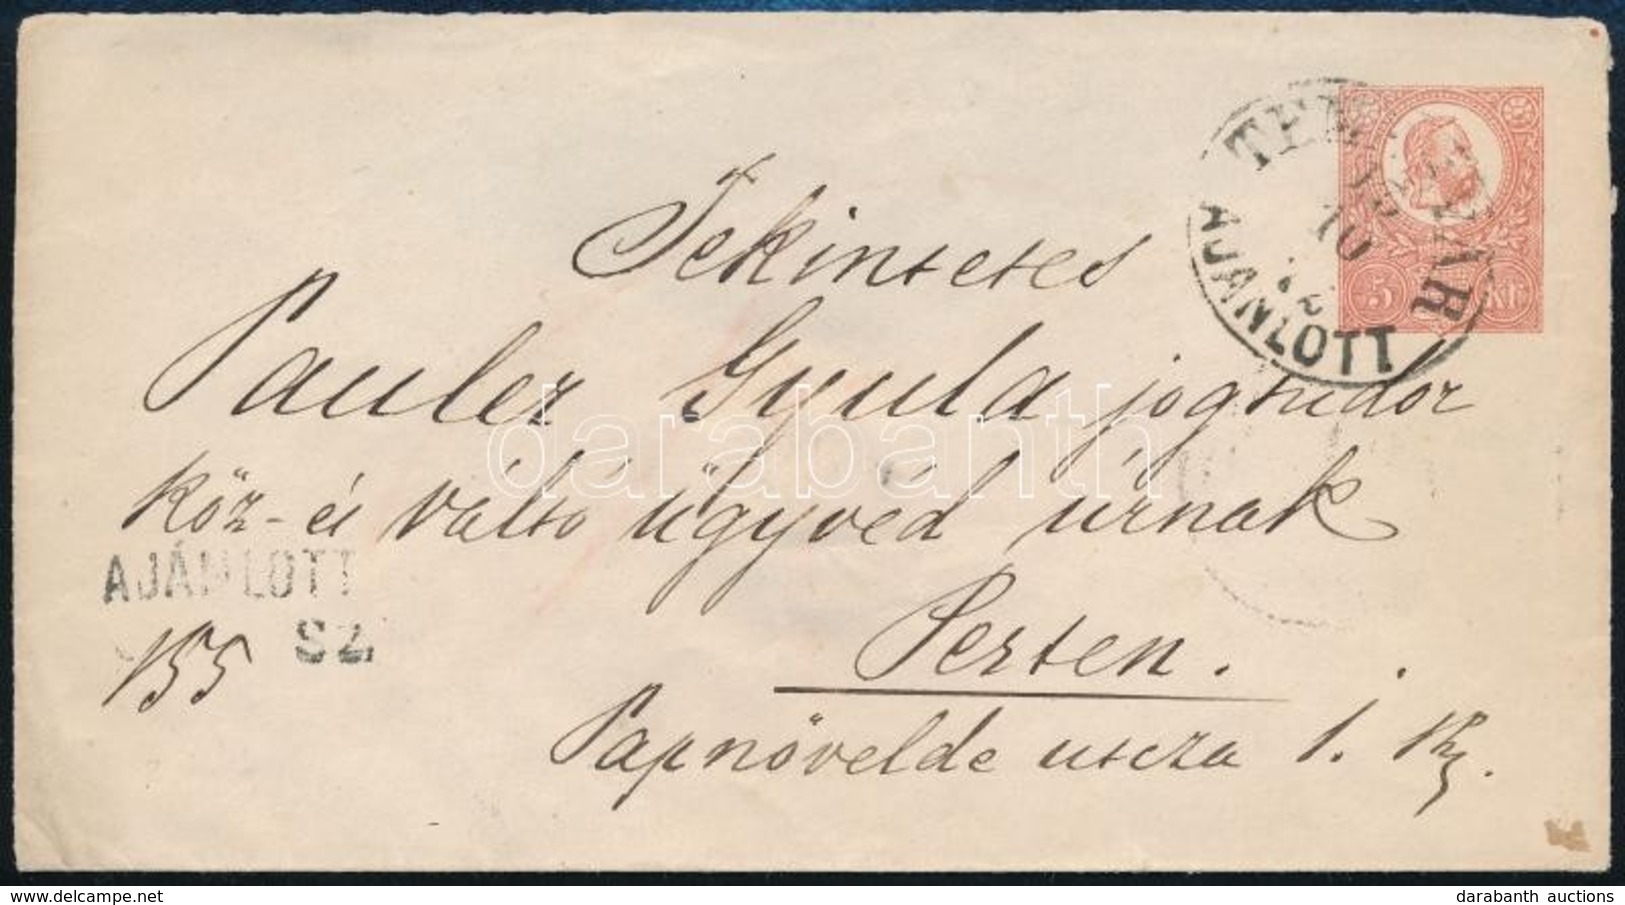 Tekintetes
Pauler Gyula jogtudor
köz- és váltó ügyvéd úrnak
AJÁNLOTT
155 SZ
Pesten.
Papnövelde utcza 1.
AJÁNLOTT
10
5 Kr
darabanth
delcampe.net
darabanth auctions